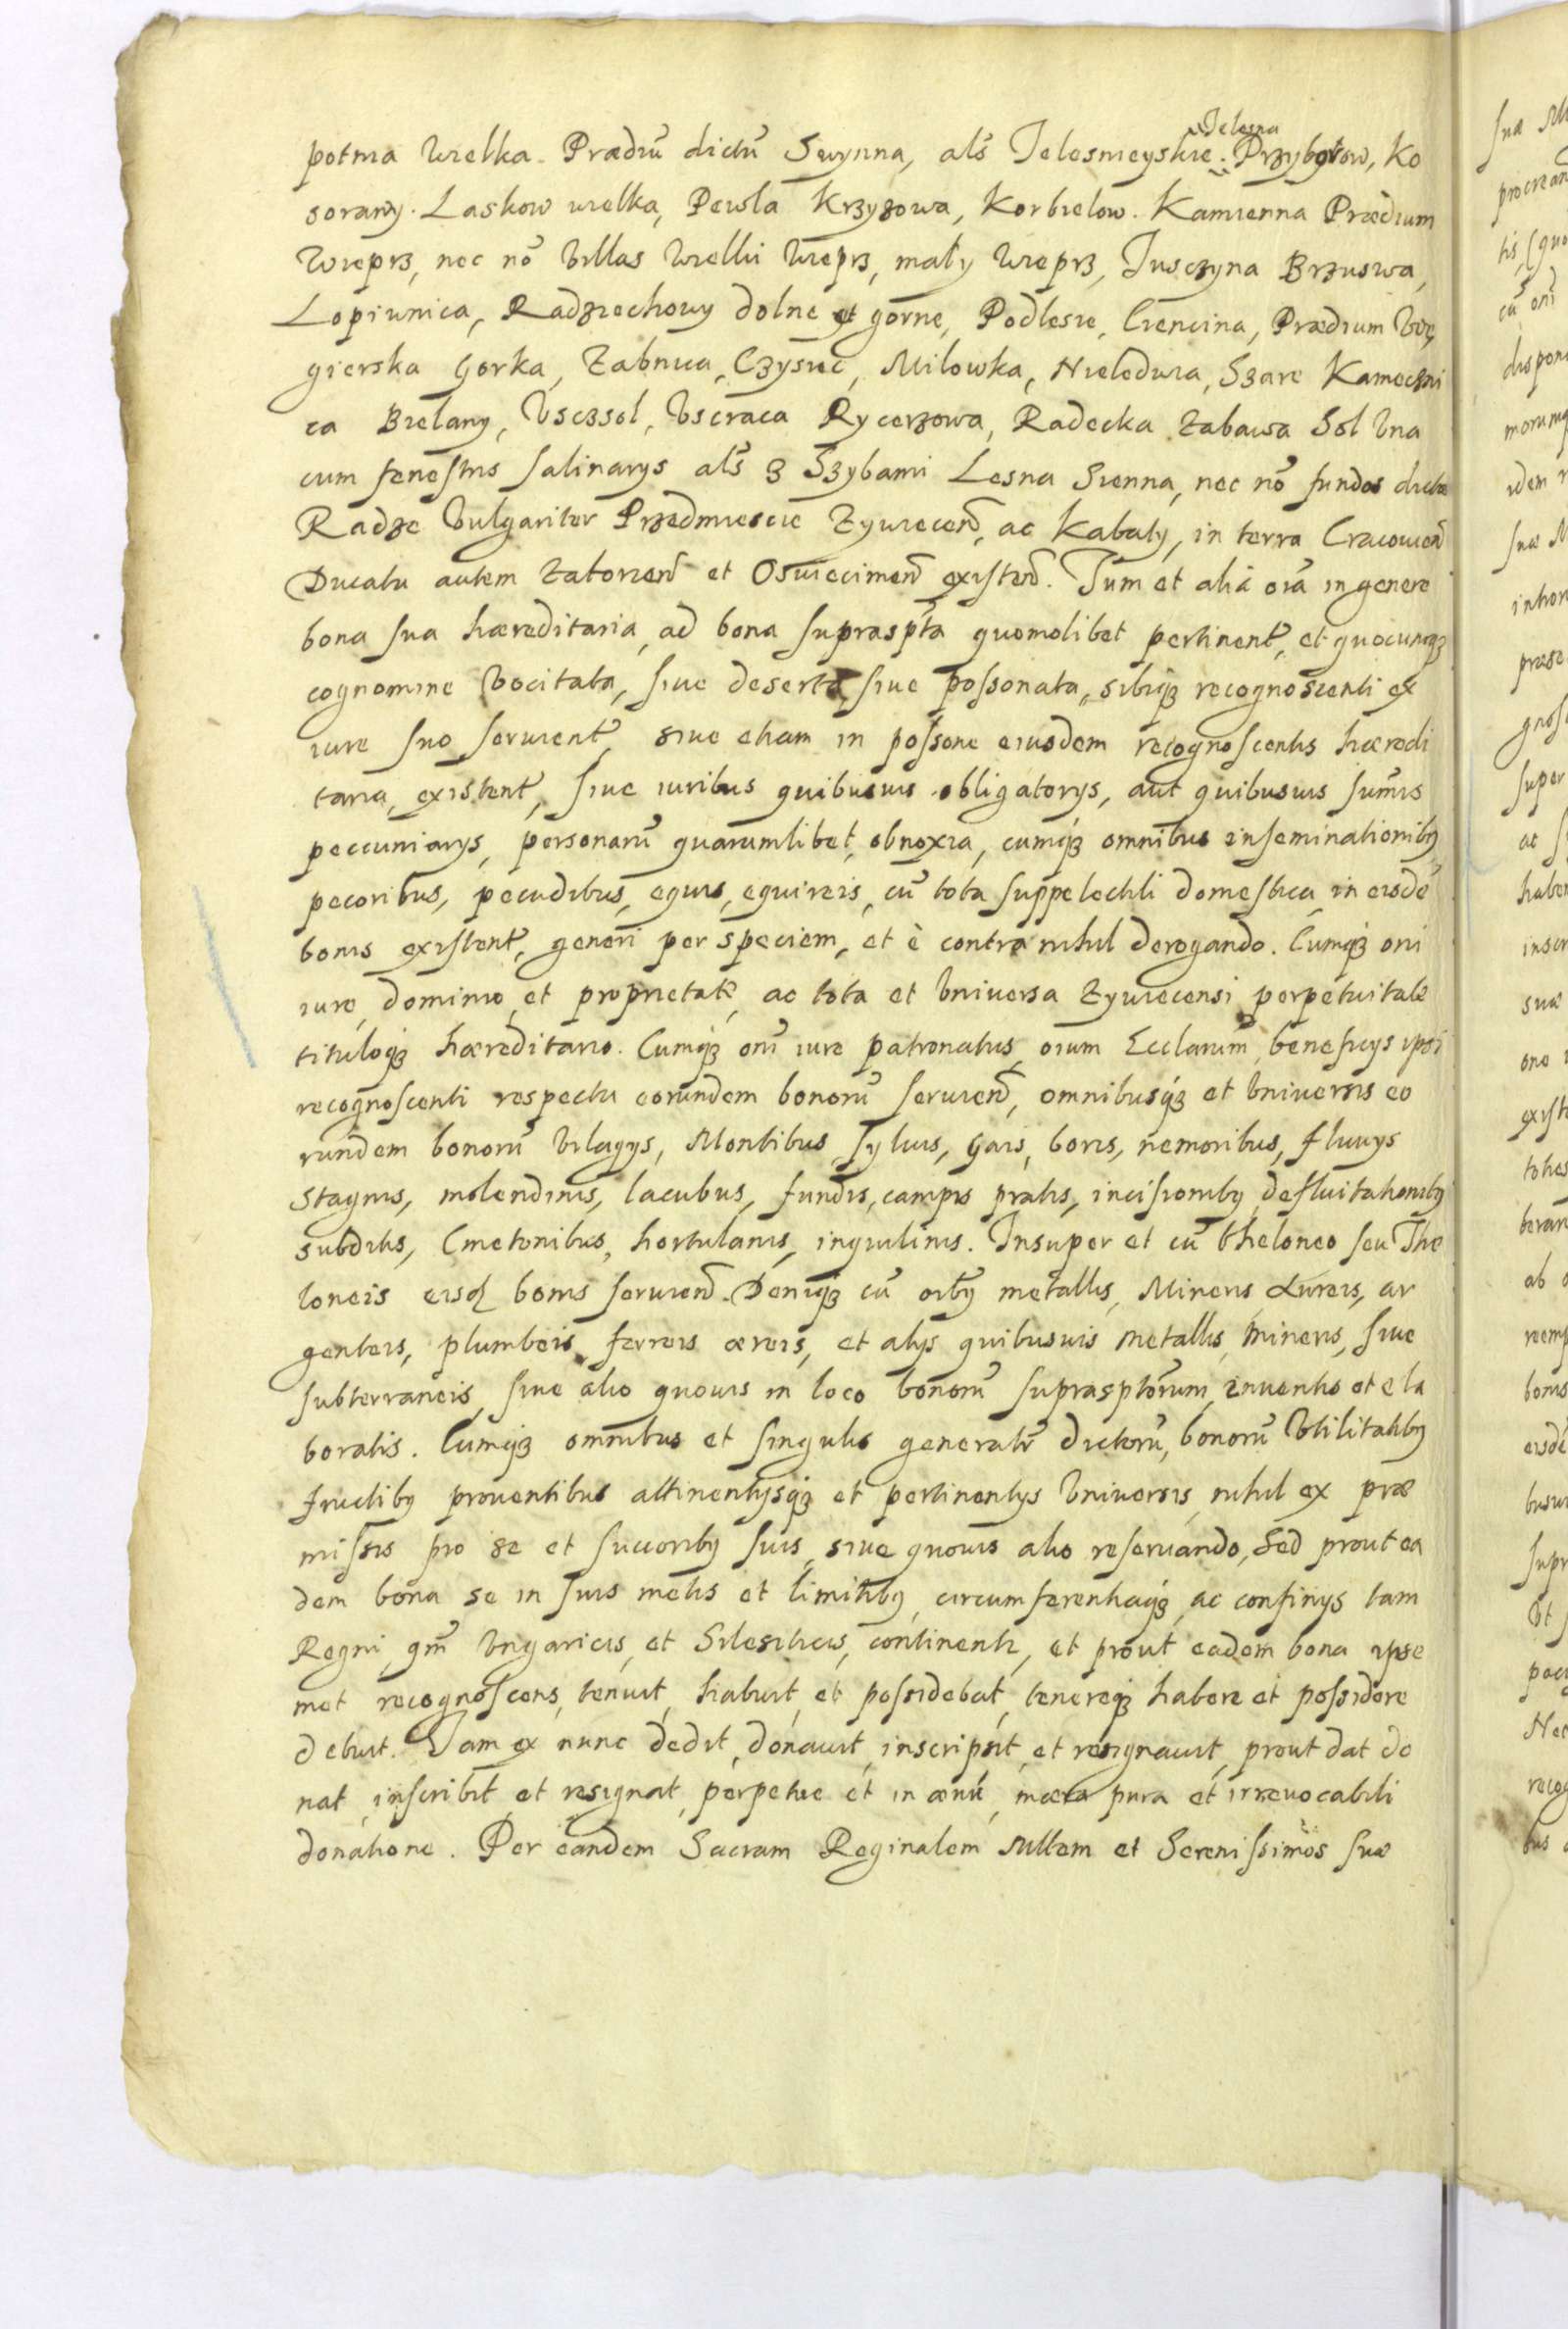 Jelesna
potnia Wielka. Prædiũ dictũ Swynna, als̃ Jelesnieyskie. Przyborow, Ko
sorawy. Laskow wielka, Pewla Krzyzowa, Korbielow. Kamienna Prædium
Wieprz, nec nõ Villas Wielki Wieprz, maly Wieprz, Jusczyna Brzusnica,
Lopiunica, Radziechowy dolne et gorne, Podlesie, Ciencina, Prædium Wę
gierska Gorka, Zabnica, Czysiec, Milowka, Nieledwia, Szare Kameczni
ca Bielany, Vsczsol, Vscraca Rycerzowa, Radecka Zabawa Sol Vna
cum fenestris salinarys als̃ z Szybami Lesna Sienna, nec nõ fundos dictos
Radze Vulgariter Przedmiescie Zywiecen̄, ac Kabaty, in terra Cracouien̄
Ducatu autem Zatorien̄ et Oswiecimen̄ existen̄. Tum et alia oĩa in genere
bona sua hæreditaria, ad bona supraspt̃a quomolibet pertinent̃, et quocunqʒ
cognomine Vocitata, siue deserta, siue possonata, sibiqʒ recognoscenti ex
iure suo seruient̃, siue etiam in possone eiusdem recognoscentis hæredi
taria, existent̃, siue iuribus quibusuis obligatorys, aut quibusuis sum̃is
peccuniarys, personarũ quarumlibet, obnoxia, cumqʒ omnibus inseminationibꝫ
pecoribus, pecudibus, equis, equireis, cũ tota suppelectili domestica, in eisdẽ
bonis existent̃, generi per speciem, et è contra nihil derogando. Cumqʒ oni
iure, dominio, et proprietat̃e, ac tota et Vniuersa Zywiecensi perpetuitate
tituloqʒ hæreditario. Cumqʒ oñi iure patronatus oium Ecclarum̃, beneficys ipsi
recognoscenti respectu eorundem bonorũ seruien̄, omnibusqʒ et Vniuersis eo
rundem bonorũ Vilagys, Montibus, Syluis, Gais, boris, nemoribus, fluuys
stagnis, molendinis, lacubus, fundis, campis pratis, incisionibꝫ defluitationibꝫ
subditis, Cmetonibus, hortulanis, inquilinis. Insuper et cũ theloneo seu The
loneis eisd bonis seruien̄. Deniqʒ cũ oĩbꝫ metallis, Mineris Aureis, ar
genteis, plumbeis, ferreis æreis, et alys quibusuis metallis, mineris, siue
subterraneis, siue alio quouis in loco bonorũ supraspt̃orum inuentis et ela
boratis. Cumqʒ omnibus et singulis generalr̃ dictorũ bonorũ Vtilitatibꝫ
fructibꝫ prouentibus attinentysqʒ et pertinentys Vniuersis, nihil ex præ
missis pro se et succoribꝫ suis, siue quouis alio reseruando, Sed prout ea
dem bona se in suis metis et limitibꝫ, circumferentiaqʒ ac confinys tam
Regni, qm̃ Vngaricis, et Silesiticis, continentr, et prout eadem bona ipse
met recognoscens, tenuit, habuit, et possidebat, tenereqʒ habere et possidere
debuit. Iam ex nunc dedit, donauit, inscripsit, et resignauit, prout dat do
nat, inscribit et resignat, perpetue et in æuũ, mæra pura et irreuocabili
donatione. Per eandem Sacram Reginalem Mttem et Serenissimos suæ